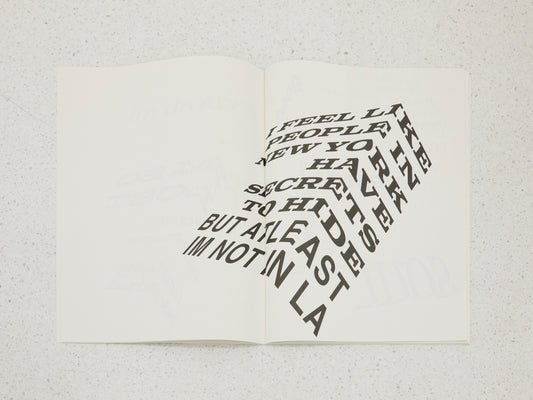 I FEEL LIKE
PEOPLE IN
NEW YORK
HAVE
SECRETS
TO HIDE
BUT AT LEAST
IM NOT IN LA